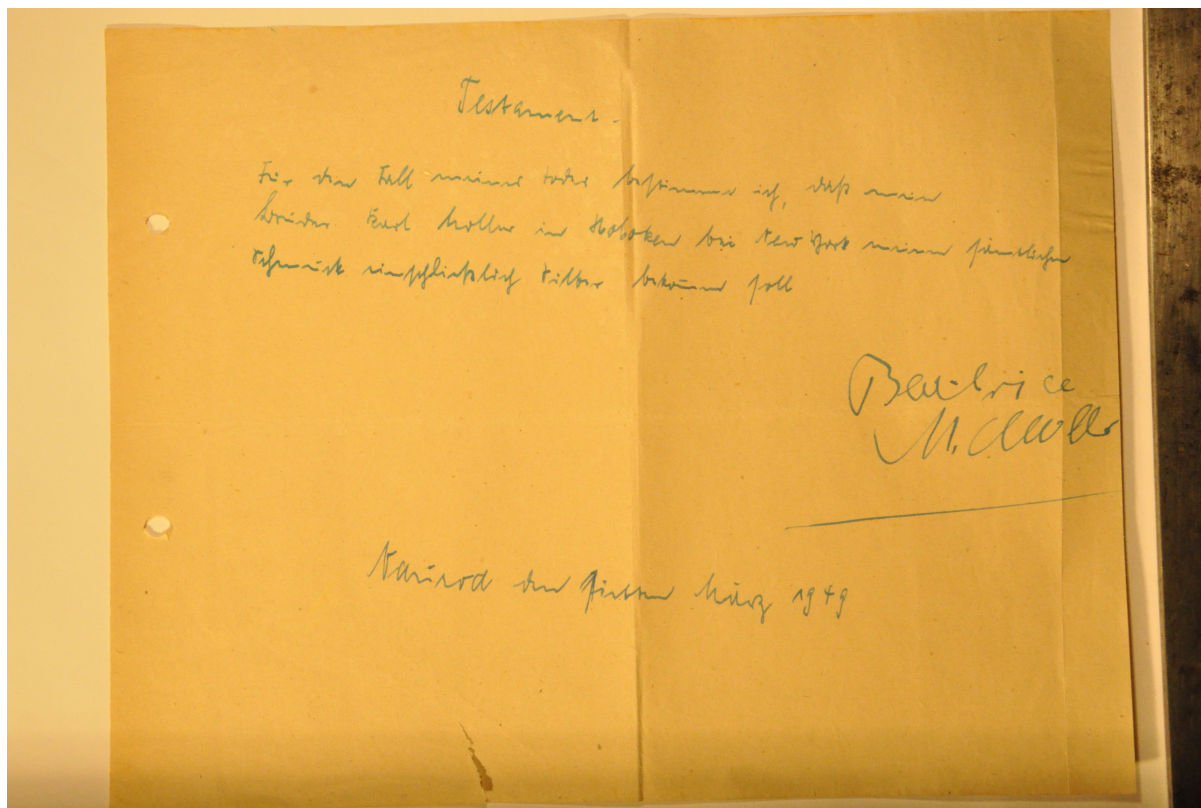 Testament.
Für den Fall meines Todes bestimme ich, daß mein
Bruder Karl Moller in Hoboken bei New York meinen sämtlichen
Schmuck einschließlich Silber bekommen soll
Beatrice
M. Moller
Naurod den siebten März 1949